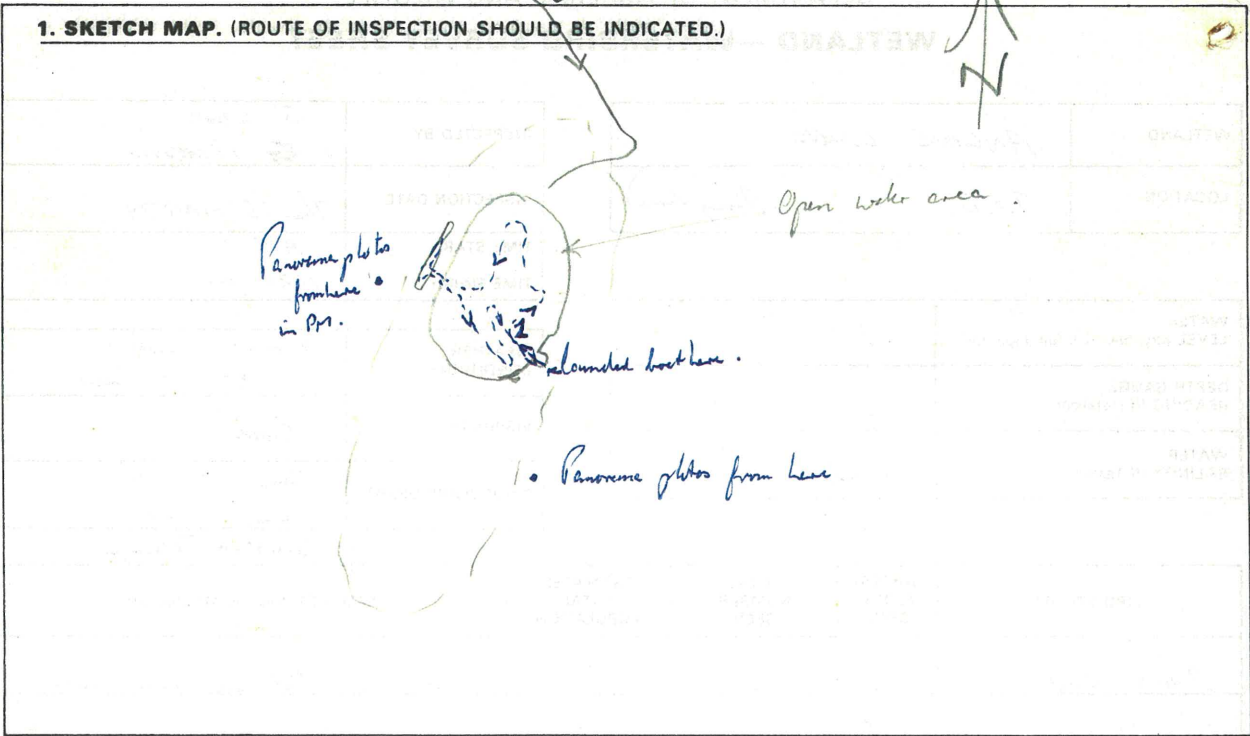 1. SKETCH MAP. (ROUTE OF INSPECTION SHOULD BE INDICATED.)
N
Open water area.
Panorama photos
from here
in PM.
launched boat here.
Panorama photos from here